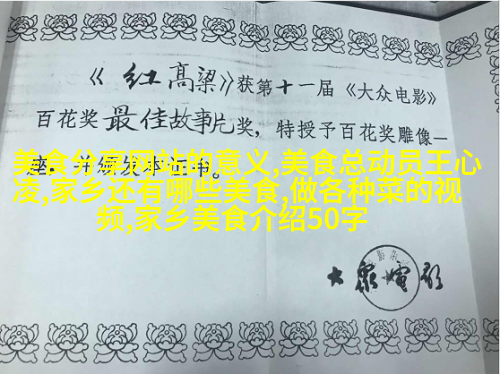 《红高粱》获第十一届《大众电影》
百花奖最佳故事片奖，特授予百花奖雕像一
座.并颁发本证书。
美食分享网站的意义,美食总动员王心
凌,家乡还有哪些美食,做各种菜的视
频,家乡美食介绍50字
大众电影